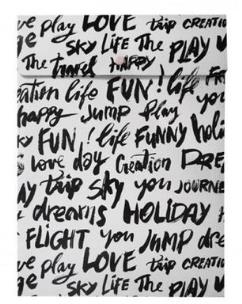 play LOVE trip CREATIO
SKY LiFE The PLAY
The HAPPY
eation life FUN! life FR
happy Jump Play yo
KY FUN! life FUNNY holi
love day Creation DRE
AY trip SKY you JOURNE
dreams HOLIDAY
FLIGHT you JUMP dre
ve play LOVE trip CREATI
e SKY LiFE The PLAY